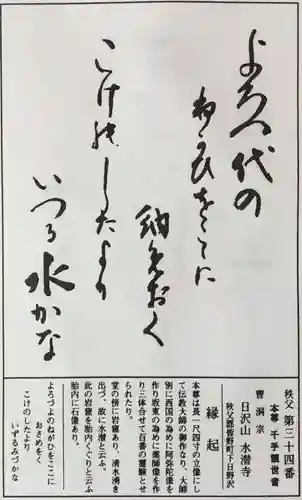 よろつ代の
ねかひをこゝに
納めおく
こけのしたより
いつる水かな
秩父 第三四番
本尊 千手観世音
曹洞宗
日沢山 水潜寺
秩父郡皆野町下日野沢
縁起
本尊は長一尺四寸の立像にし
て伝教大師の御作なり、大師
別に西国の為めに阿弥陀像を
作り坂東の為めに薬師像を作
り三体合せて百番の霊験とせ
られたり。
堂の傍に岩窟あり、清水湧き
出づ、故に水潜と云ふ。
此の岩窟を胎内くぐりと云ふ
胎内に石像あり。
よろづよのねがひをここに
おさめをく
こけのしたより
いずるみづかな